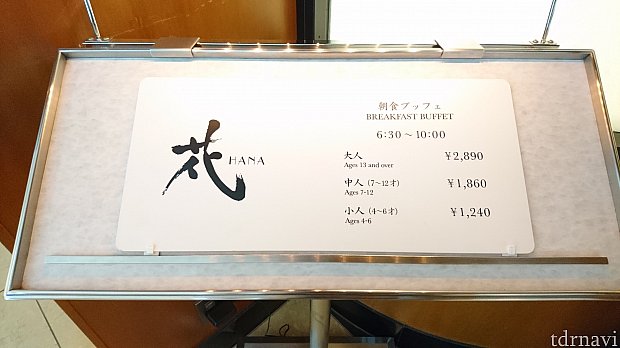 花 HANA
朝食ブッフェ
BREAKFAST BUFFET
6:30～10:00
大人 ￥2,890
Ages 13 and over
中人（7～12才） ￥1,860
Ages 7-12
小人（4～6才） ￥1,240
Ages 4-6
tdrnavi